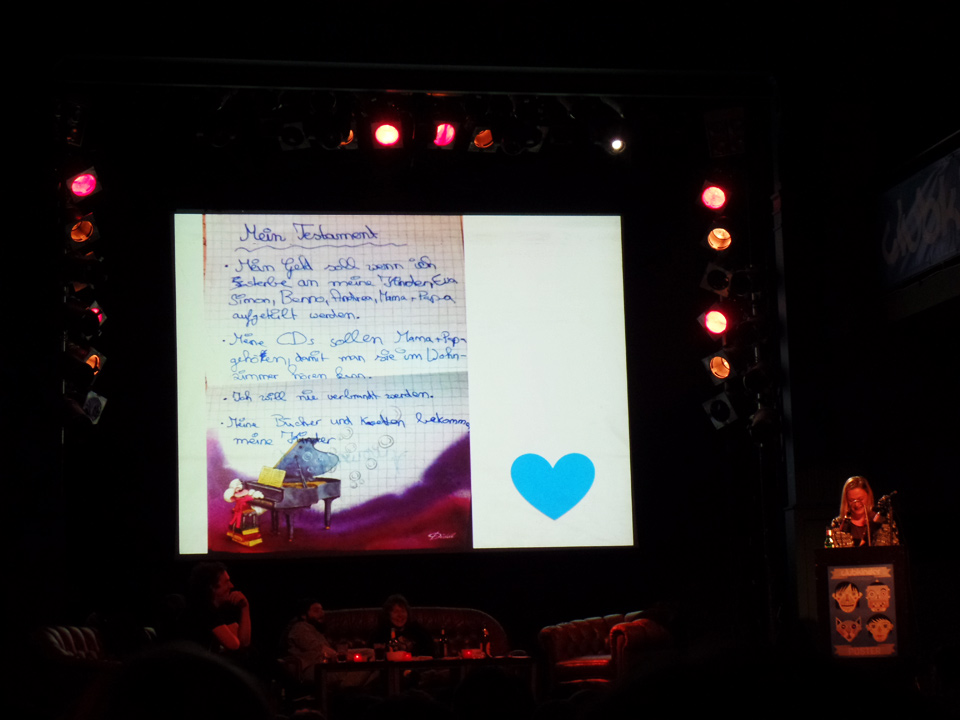 Mein Testament
· Mein Geld soll wenn ich
sterbe an meine Kinder, Eva
Simon, Benno, Andrea, Mama + Papa
aufgeteilt werden.
· Meine CDs sollen Mama + Papa
gehören, damit man sie im Wohn-
zimmer hören kann.
· Ich will nie verbrannt werden.
· Meine Bücher und bekomme
meine Kinder